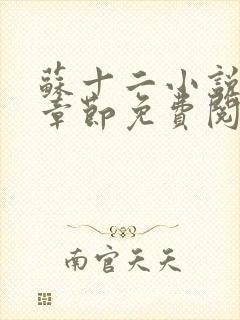 蘇十二小說
章節免費閱
南宮天天